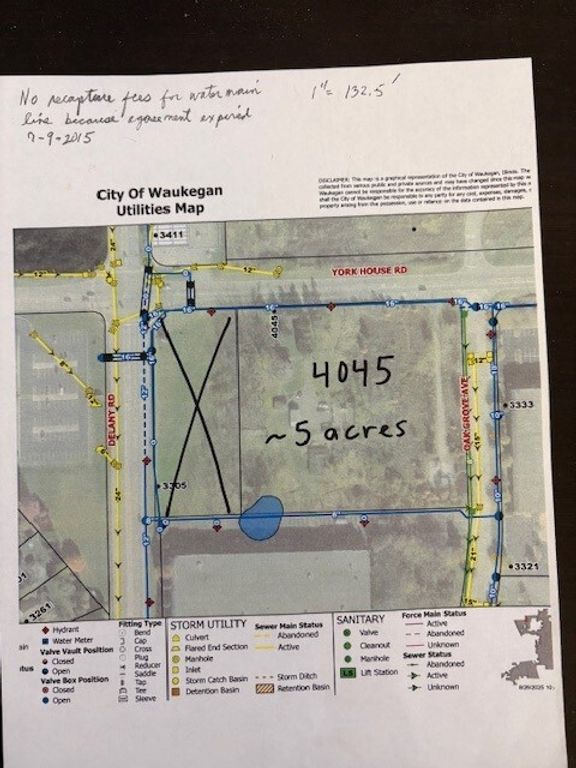 No recapture fees for watermain
line because agreement expired
7-9-2015
1" = 132.5'
City Of Waukegan
Utilities Map
DISCLAIMER: This map is a graphical representation of the City of Waukegan, Illinois. The
collected from various public and private sources and may have changed since this map w
Waukegan cannot be responsible for the accuracy of the information represented by this
shall the City of Waukegan be responsible to any party for any cost, expenses, damages,
property arising from the possession, use or reliance on the data contained in this map.
3411
24"
12"
12"
YORK HOUSE RD
16"
16"
16"
16"
4045
4045
~5 acres
DELANY RD
OAK GROVE AVE
12"
12"
3333
15"
10"
3305
24"
8"
12"
21"
10"
3321
15"
3261
Hydrant
Water Meter
Valve Vault Position
Closed
Open
Valve Box Position
Closed
Open
Fitting Type
Bend
Cap
Cross
Plug
Reducer
Saddle
Tap
Tee
Sleeve
STORM UTILITY
Culvert
Flared End Section
Manhole
Inlet
Storm Catch Basin
Detention Basin
Sewer Main Status
Abandoned
Active
Storm Ditch
Retention Basin
SANITARY
Valve
Cleanout
Manhole
LS Lift Station
Force Main Status
Active
Abandoned
Unknown
Sewer Status
Abandoned
Active
Unknown